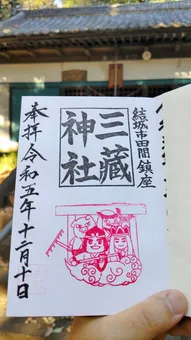 結城市田間鎮座
三蔵
神社
奉拝令和五年十二月十日